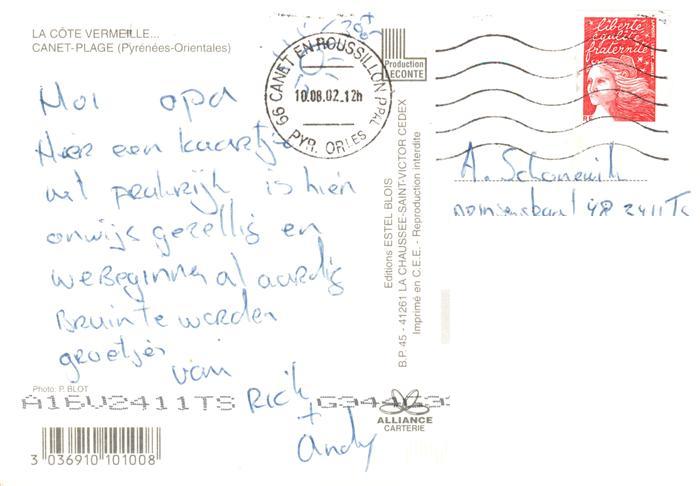 LA CÔTE VERMEILLE...
CANET-PLAGE (Pyrénées-Orientales)
Hoi opa
Hier een kaartje
uit frankrijk is hier
onwijs gezellig en
we Beginnen al aardig
Bruin te worden
groetjes
van
RICK
+
andy
Photo: P. BLOT
A16V2411TS
3 036910 101008
66 CANET EN ROUSSILLON PPAL
10.08.02.12h
PYR. ORLES
Production
LECONTE
Editions ESTEL BLOIS
B.P. 45 - 41261 LA CHAUSSEE-SAINT-VICTOR CEDEX
Imprimé en C.E.E. - Reproduction interdite
ALLIANCE
CARTERIE
liberté
égalité
fraternité
RF
A.
48 2411TS